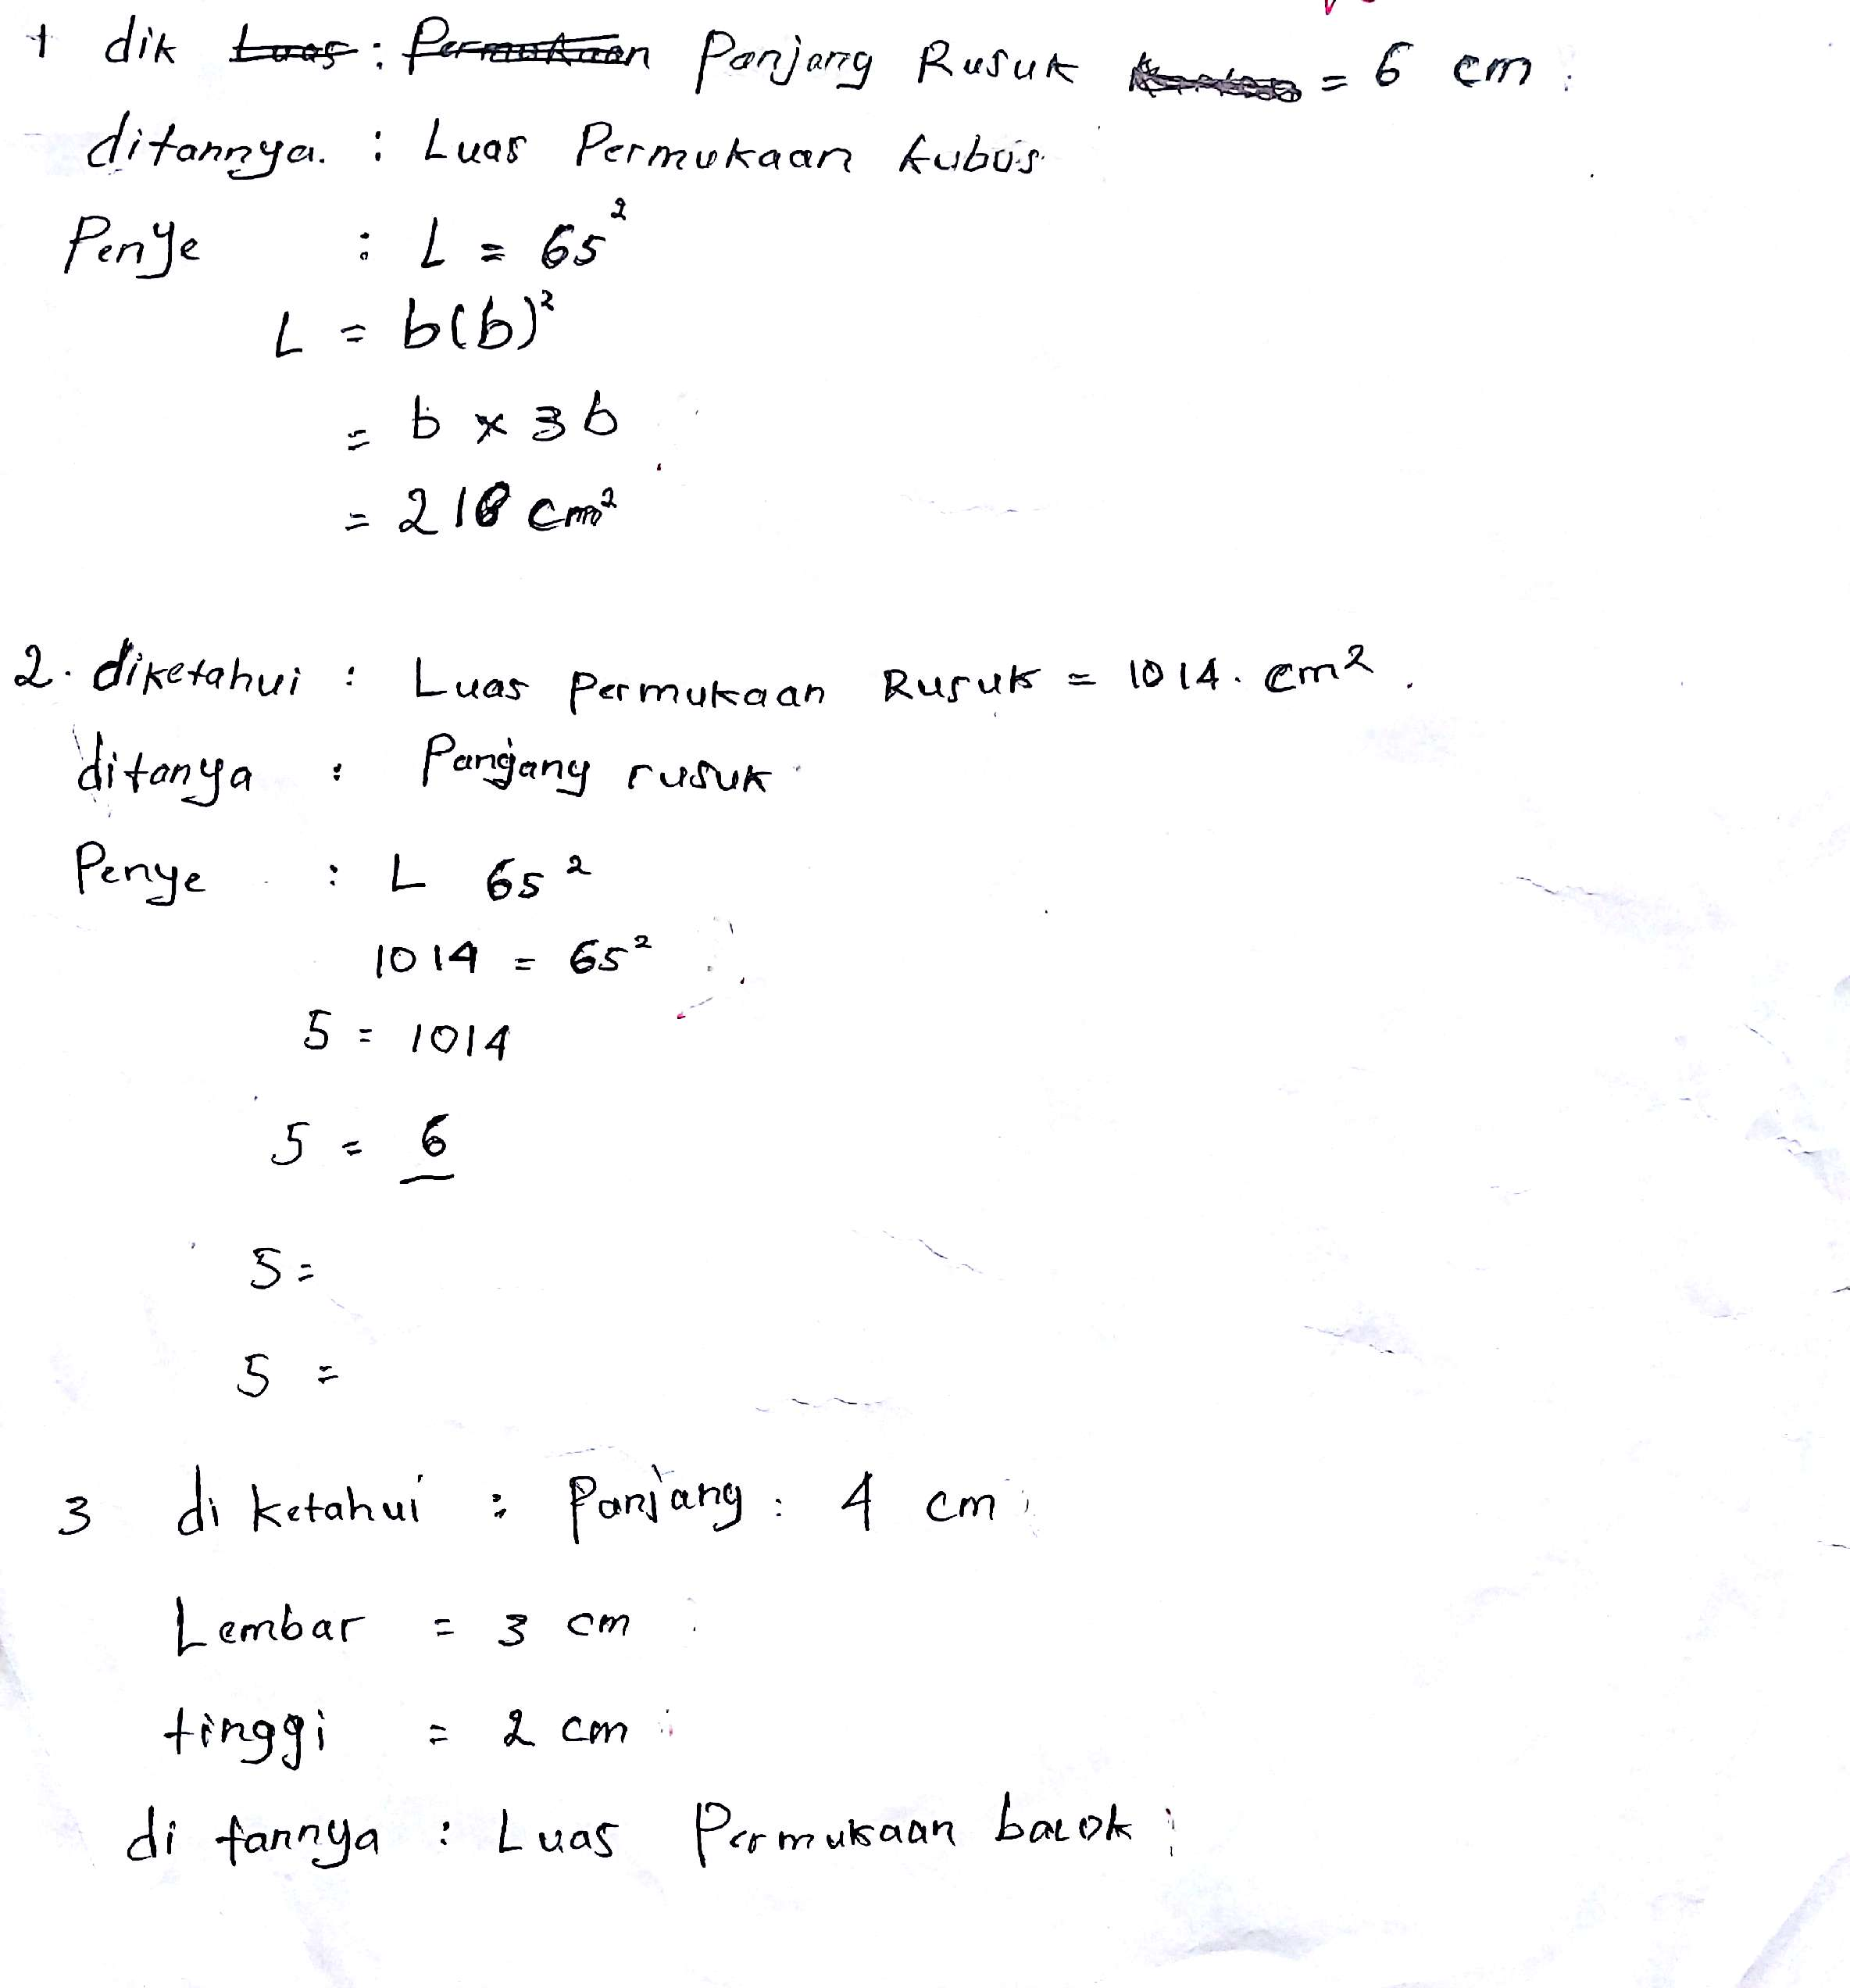 1 dik : Panjang Rusuk = 6 cm
ditannya. : Luas Permukaan kubus
Penye : L = 65²
L = 6(6)²
= 6 × 36
= 216 cm²
2. diketahui : Luas Permukaan Rusuk = 1014. cm².
ditanya : Panjang rusuk
Penye : L 65²
1014 = 65²
5 = 1014
5 = 6
5 =
5 =
3 di ketahui : Panjang : 4 cm
Lembar = 3 cm
tinggi = 2 cm
di tannya : Luas Permukaan balok